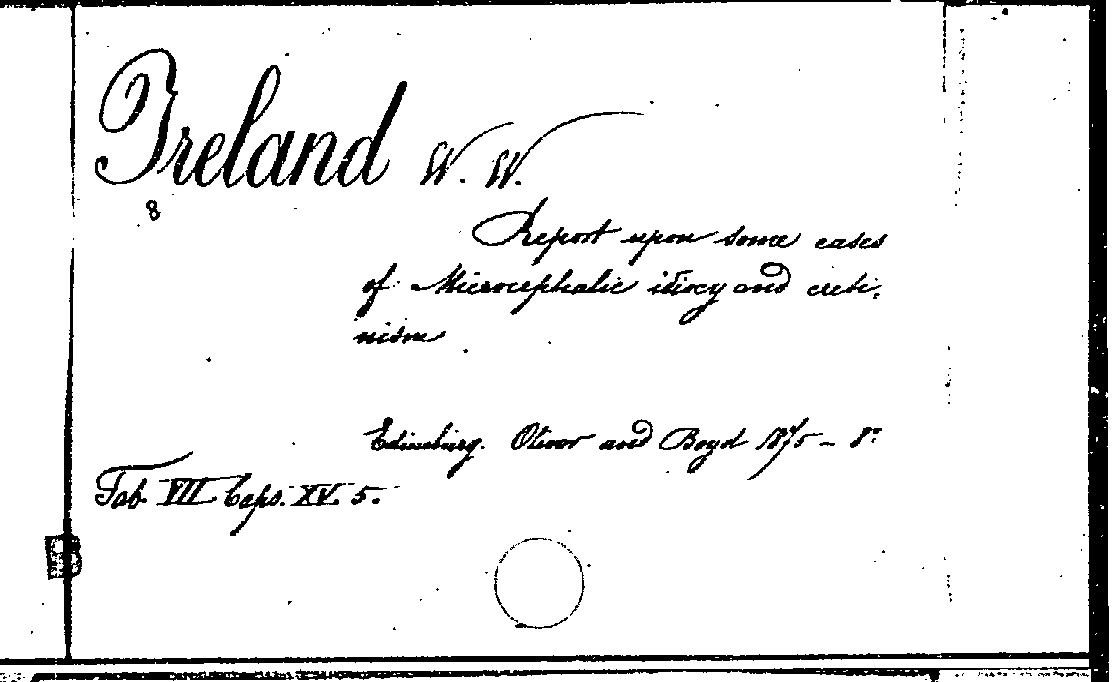 Ireland W. W.
8
Report upon some cases
of Microcephalic idiocy and creti-
nism
Edinburg. Oliver and Boyd 1875 – 8º
Tab. VII Caps. XV. 5.